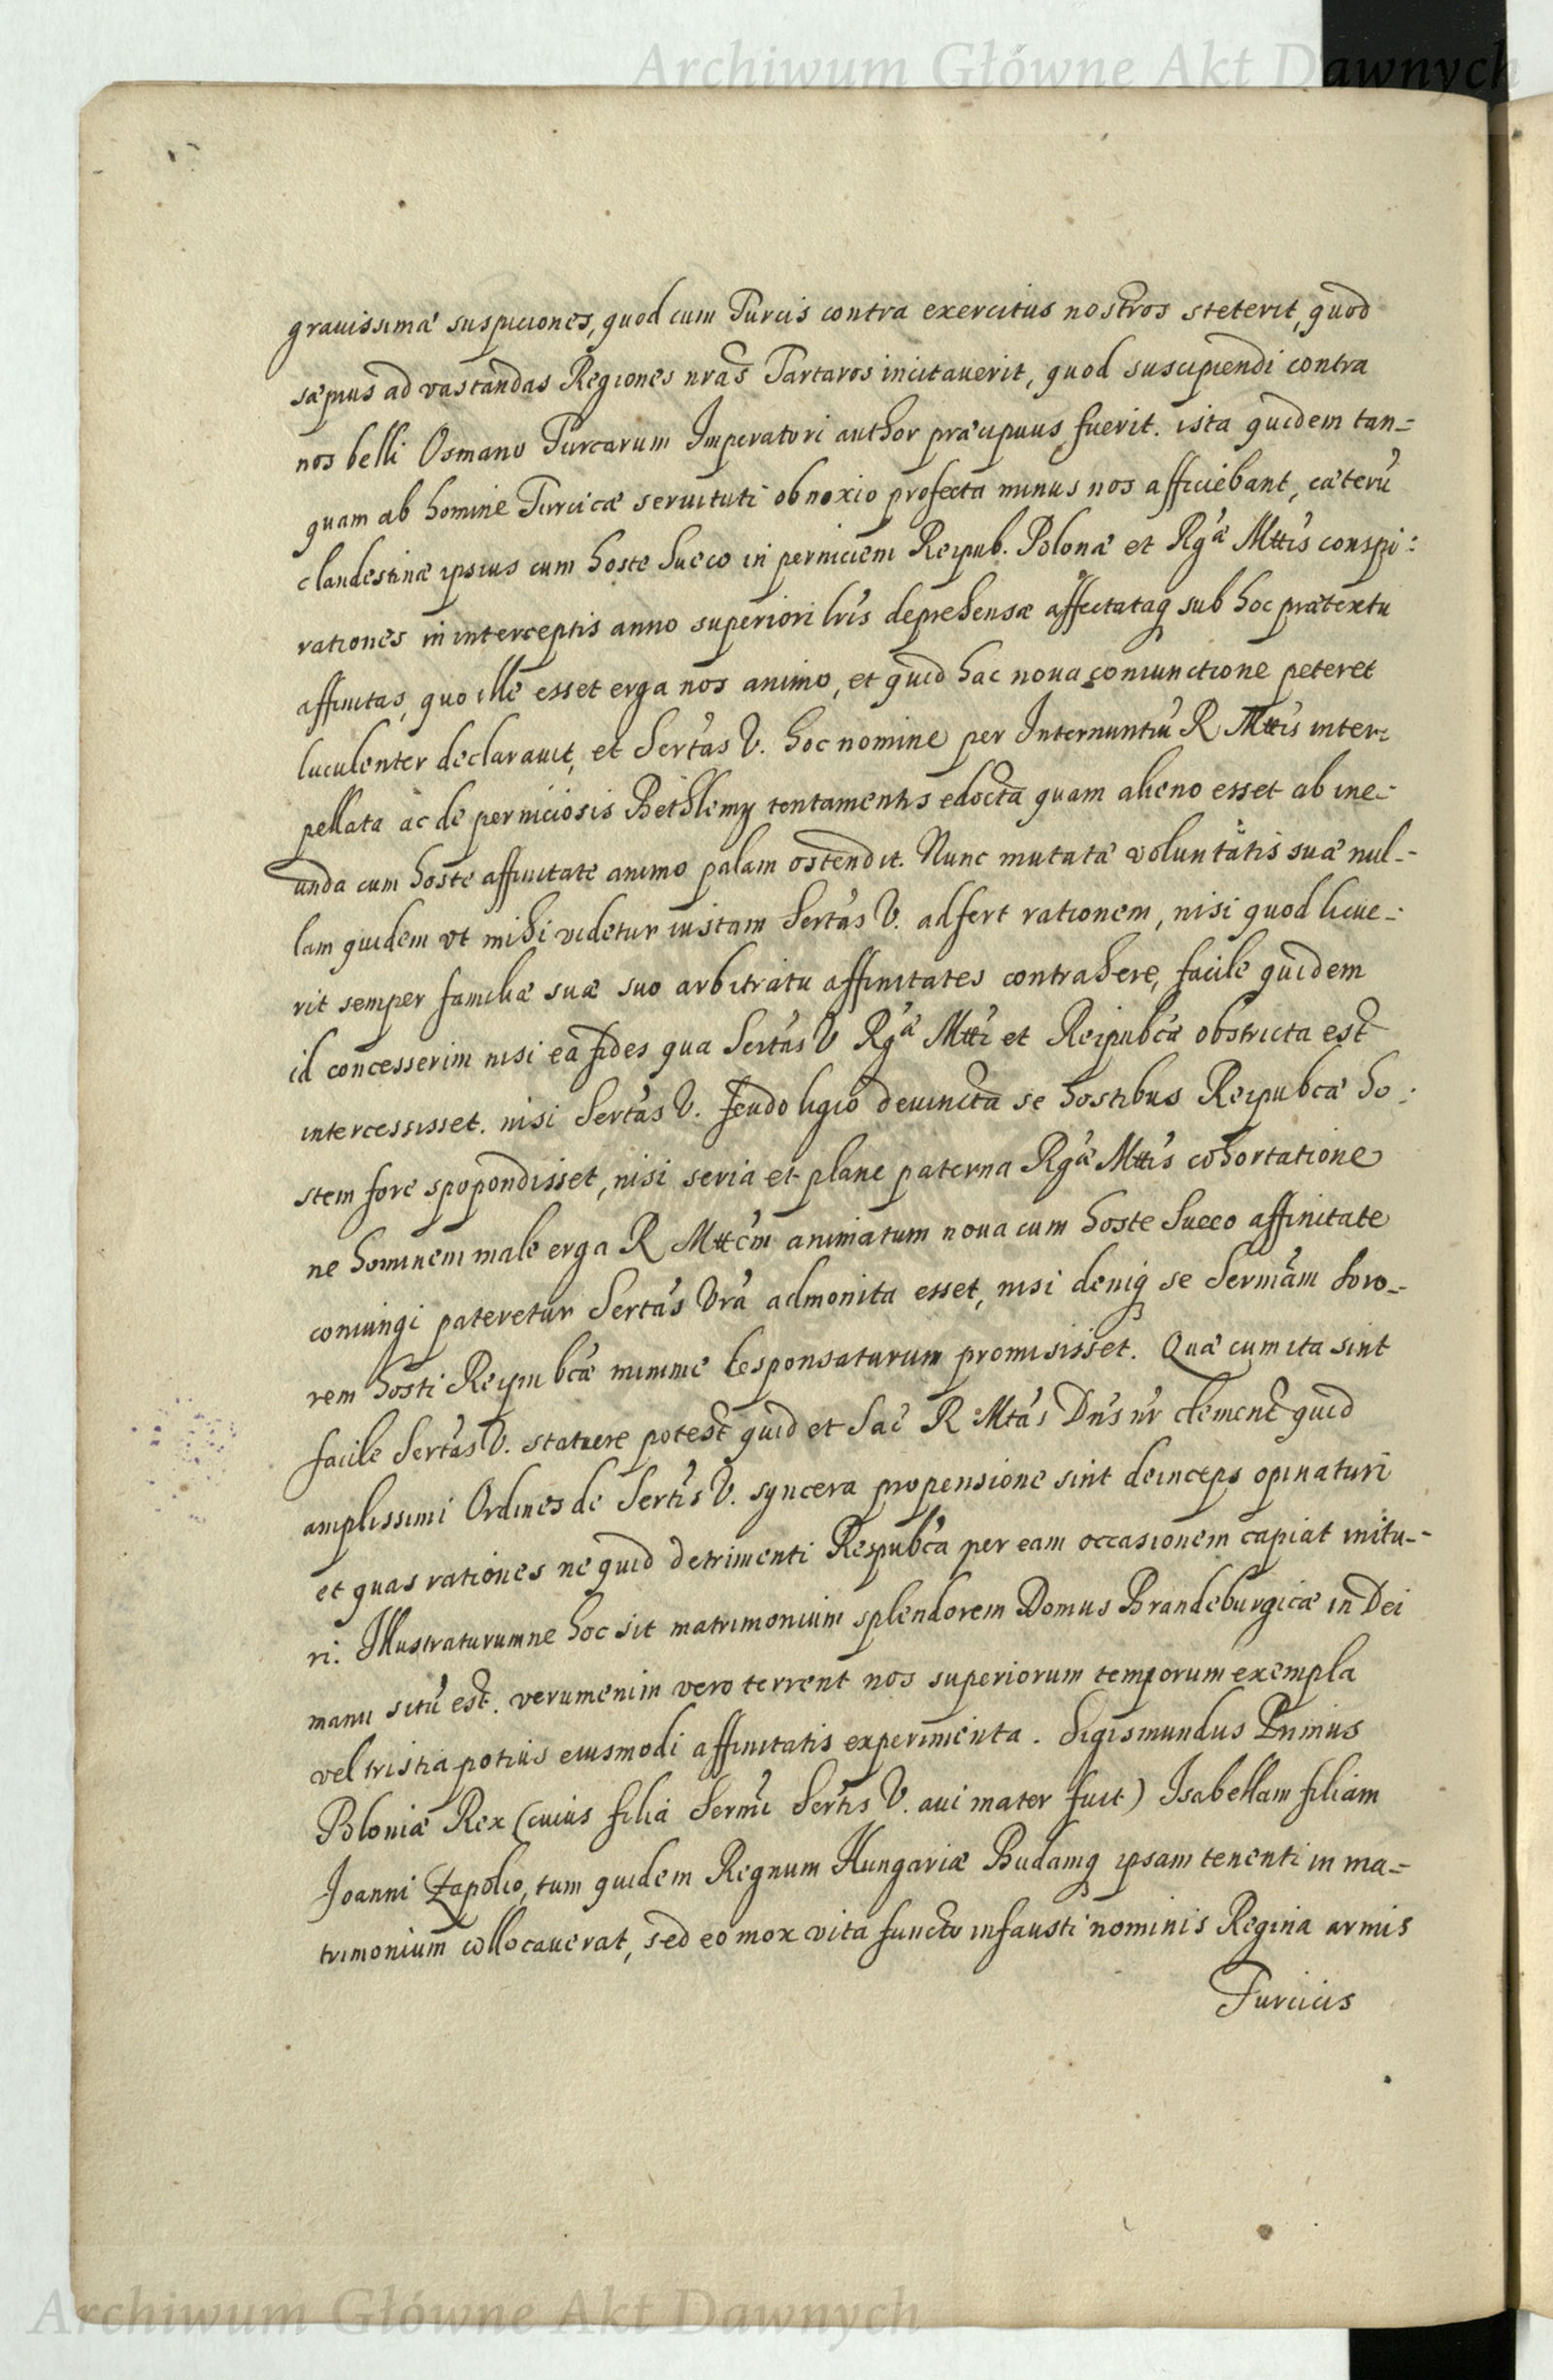 Archiwum Główne Akt Dawnych
grauissimæ suspiciones, quod cum Turcis contra exercitus nostros steterit, quod
sæpius ad vastandas Regiones nr̃as Tartaros incitauerit, quod suscipiendi contra
nos belli Osmano Turcarum Imperatori author præcipuus fuerit. ista quidem tan-
quam ab homine Turcicæ seruituti obnoxio profecta minus nos afficiebant, cæterũ
clandestinæ ipsius cum hoste Sueco in perniciem Reipub. Polonæ et Rgæ Mttis conspi:
rationes in interceptis anno superiori lr̃is deprehensæ affectataq sub hoc prætextu
affinitas, quo ille esset erga nos animo, et quid hac noua coniunctione peteret
luculenter declarauit, et Sert̃as V. hoc nomine per Internuntiũ R Mttis inter-
pellata ac de perniciosis Bethlemy tentamentis edocta quam alieno esset ab ine-
unda cum hoste affinitate animo palam ostendit. Nunc mutatæ voluntatis suæ nul-
lam quidem vt mihi videtur iustam Sert̃as V. adfert rationem, nisi quod licue-
rit semper familiæ suæ suo arbitratu affinitates contrahere, facile quidem
id concesserim nisi ea fides qua Sert̃as V Rgæ Mtti et Reipubcæ obstricta est
intercessisset. nisi Sert̃as V. feudo ligio deuincta se hostibus Reipubcæ ho:
stem fore spopondisset, nisi seria et plane paterna Rgæ Mttis cohortatione
ne hominem male erga R Mttẽm animatum noua cum hoste Sueco affinitate
coniungi pateretur Sert̃as Vr̃a admonita esset, nisi deniq se Serm̃am Soro-
rem hosti Reipubcæ minime desponsaturum promisisset. Quæ cum ita sint
facile Sert̃as V. statuere potest quid et Sac̃ R Mtãs Dñs nr̃ clement quid
amplissimi Ordines de Sert̃is V. syncera propensione sint deinceps opinaturi
et quas rationes ne quid detrimenti Respubca per eam occasionem capiat initu-
ri. Illustraturumne hoc sit matrimonium splendorem Domus Brandeburgicæ in Dei
manu sitũ est. verumenim vero terrent nos superiorum temporum exempla
vel tristia potius eiusmodi affinitatis experimenta. Sigismundus Primus
Poloniæ Rex (cuius filia Serm̃i Sert̃is V. aui mater fuit) Isabellam filiam
Joanni Zapolio, tum quidem Regnum Hungariæ Budamq ipsam tenenti in ma-
trimonium collocauerat, sed eo mox vita functo infausti nominis Regina armis
Turcicis
Archiwum Główne Akt Dawnych